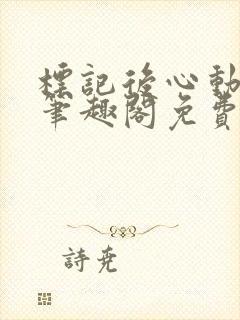 標記後心動
筆趣閣免費
詩堯